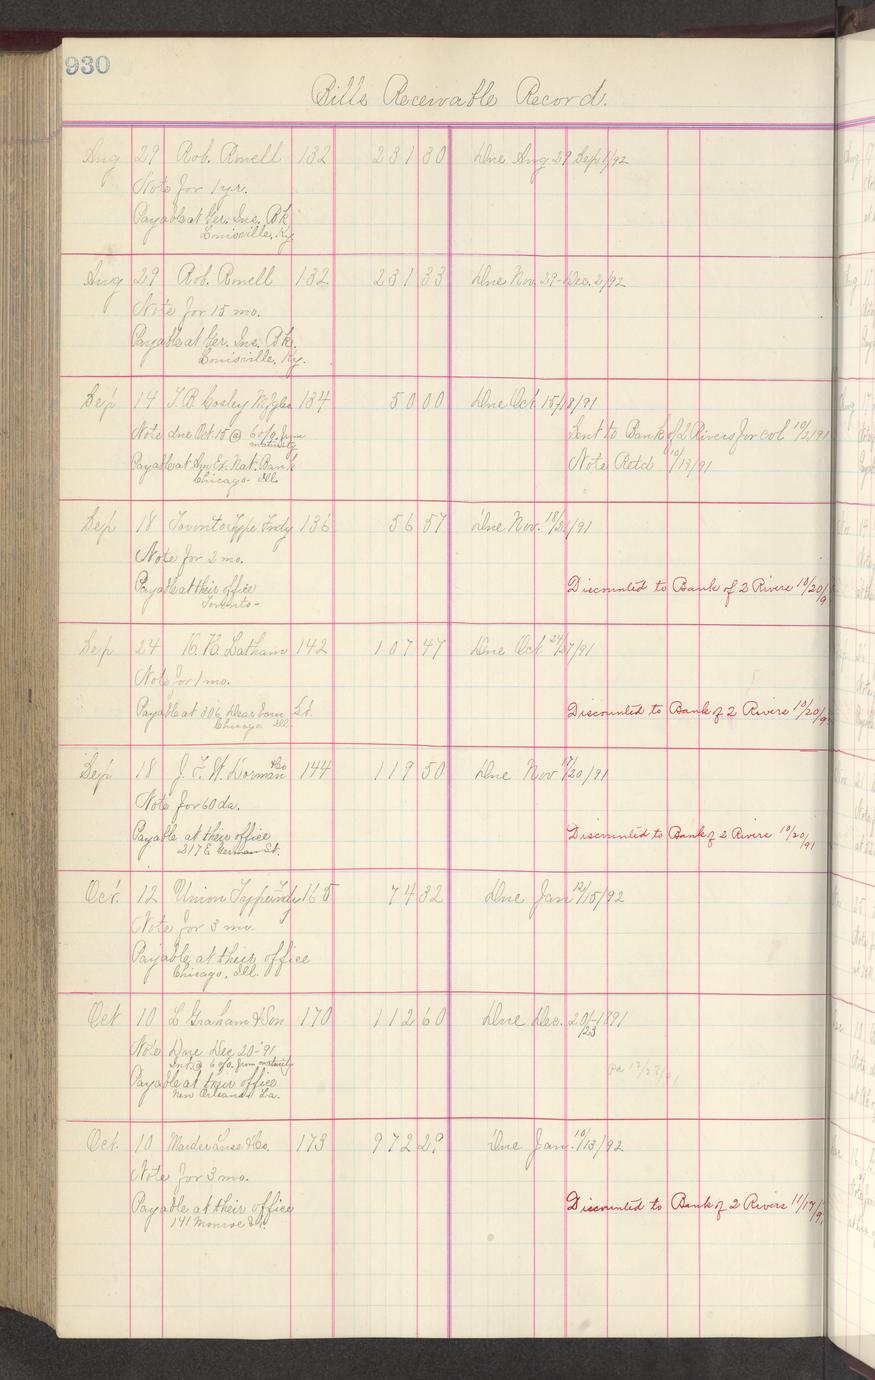 930
Bills Receivable Record.
Aug 29 Rob. Rowell 132 231 30 Due Aug 29 Sep 1/92
Note for 1 yr.
Payable at Ger. Ins. Bk
Louisville, Ky.
Aug 29 Rob. Rowell 132 231 33 Due Nov. 29 - Dec. 2/92
Note for 15 mo.
Payable at Ger. Ins. Bk.
Louisville, Ky.
Sep 14 T. B. Cosley 134 50 00 Due Oct. 15/18/91
Note due Oct. 15 @ 6 o/o from Sent to Bank of 2 Rivers for col 10/2/91
maturity
Payable at Am. Ex. Nat. Bank Note Retd 10/19/91
Chicago - Ill.
Sep 18 Toronto Type Fndy 136 56 57 Due Nov. 18/21/91
Note for 2 mo.
Payable at their office Discounted to Bank of 2 Rivers 10/20/9
Toronto -
Sep 24 Latham 142 107 47 Due Oct 24/27/91
Note for 1 mo.
Payable at 306 Dearborn St. Discounted to Bank of 2 Rivers 10/20/9
Chicago Ill.
Sep 18 J. F. W. Dorman & Co 144 119 50 Due Nov 17/20/91
Note for 60 da.
Payable at their office Discounted to Bank of 2 Rivers 10/20/91
217 E German St.
Oct. 12 Union Type Fndy 165 74 32 Due Jan 12/15/92
Note for 3 mo.
Payable at their office
Chicago, Ill.
Oct 10 L Graham & Son 170 112 60 Due Dec. 20/23-1891
Note Due Dec 20-'91
Int. @ 6 o/o. from maturity
Payable at their office
New Orleans La.
Oct. 10 & Co. 173 972 29 Due Jan. 10/13/92
Note for 3 mo.
Payable at their office Discounted to Bank of 2 Rivers 11/17/9
141 Monroe St.